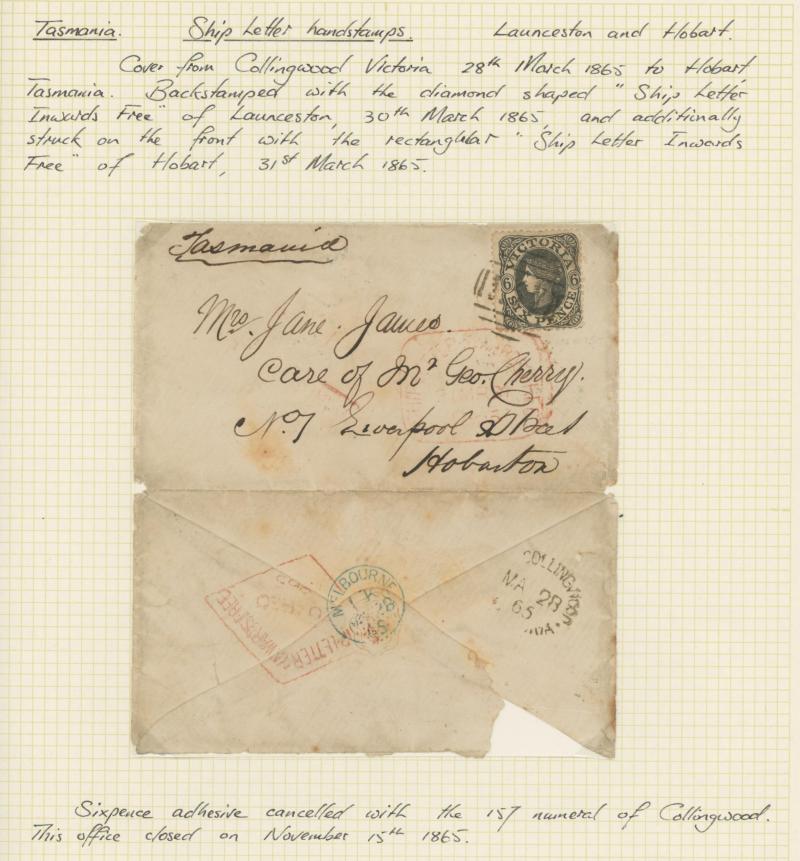 Tasmania. Ship Letter handstamps. Launceston and Hobart.
Cover from Collingwood Victoria 28th March 1865 to Hobart
Tasmania. Backstamped with the diamond shaped "Ship Letter
Inwards Free" of Launceston, 30th March 1865, and additionally
struck on the front with the rectangular "Ship Letter Inwards
Free" of Hobart, 31st March 1865.
Tasmania
VICTORIA
6 6
SIX PENCE
Mrs. Jane. James.
Care of Mr Geo. Cherry.
No. 7 Liverpool Street
Hobarton
COLLINGWOOD
MA 28
65
MELBOURNE
65
LETTER
INWARDS FREE
Sixpence adhesive cancelled with the 157 numeral of Collingwood.
This office closed on November 15th 1865.